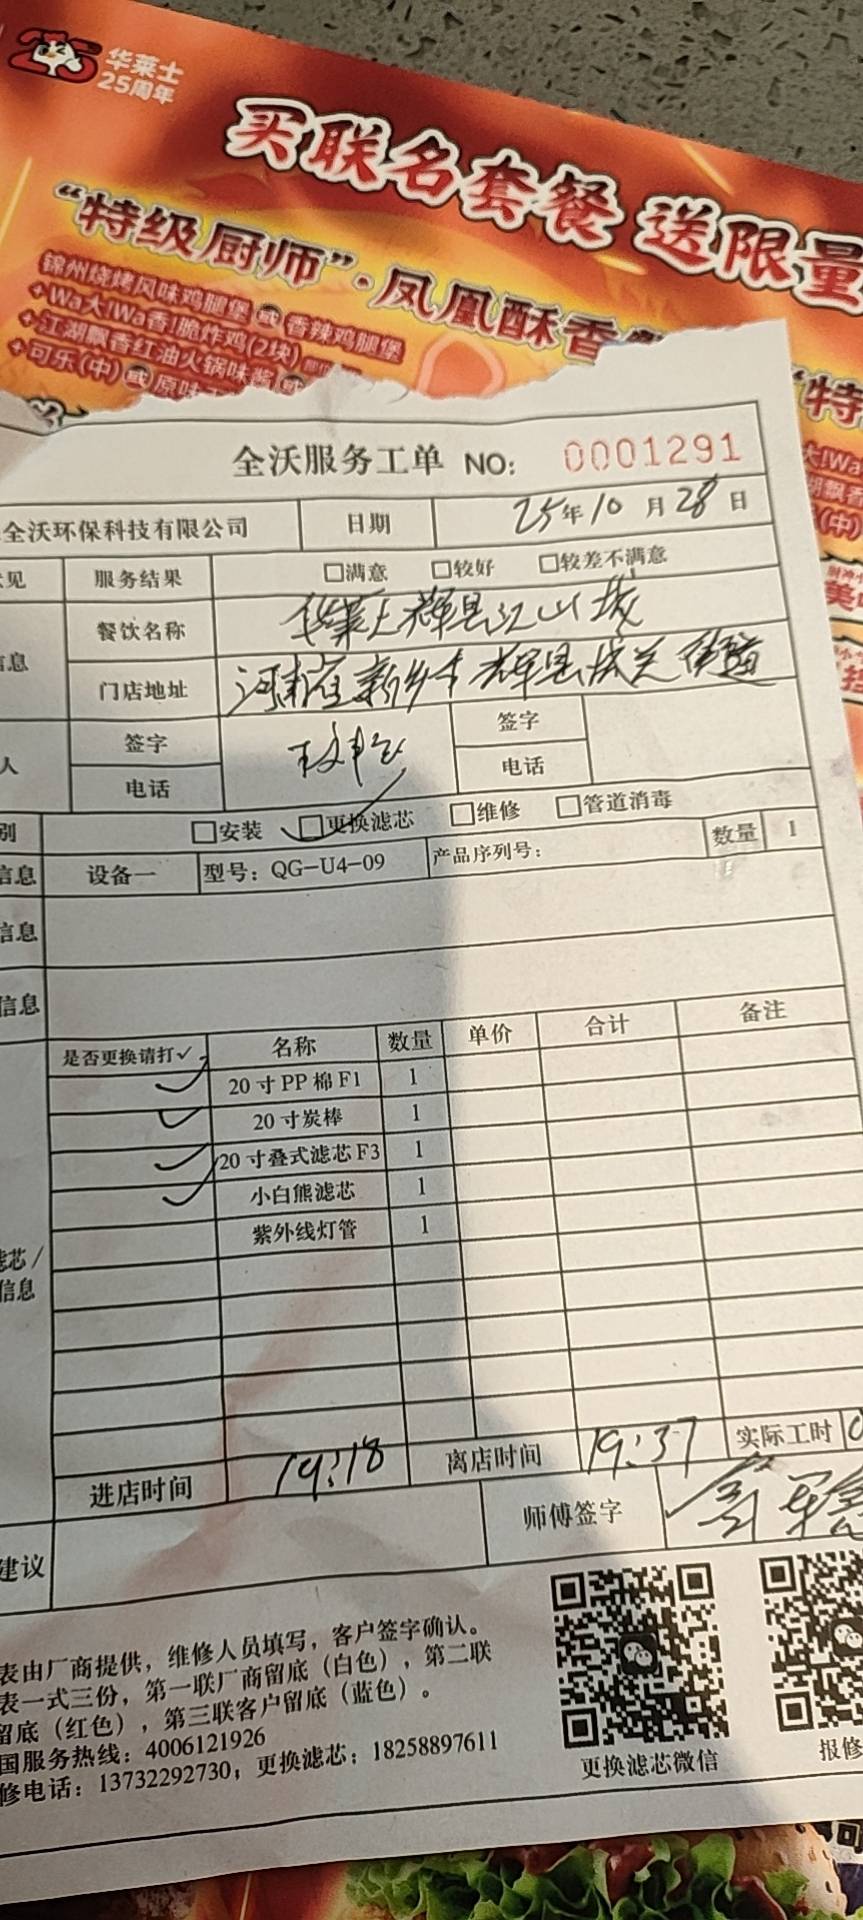 华莱士
25周年
买联名套餐 送限量
“特级厨师”·凤凰酥香
锦州烧烤风味鸡腿堡 或 香辣鸡腿堡
+Wa大!Wa香!脆炸鸡(2块)
+江湖飘香红油火锅味酱 或
+可乐(中) 或 原味
“特
大!Wa
(中)
美
全沃服务工单 NO: 0001291
全沃环保科技有限公司 日期 25年10月28日
意见 服务结果 □满意 □较好 □较差不满意
信息 餐饮名称 华莱士辉县江山城
门店地址 河南省新乡市辉县城关街道
人 签字 签字
电话 电话
别 □安装 □更换滤芯 □维修 □管道消毒
信息 设备一 型号: QG-U4-09 产品序列号: 数量 1
信息
信息
是否更换请打✓ 名称 数量 单价 合计 备注
✓ 20寸PP棉F1 1
✓ 20寸炭棒 1
✓ 20寸叠式滤芯F3 1
✓ 小白熊滤芯 1
紫外线灯管 1
滤芯/
信息
进店时间 19:18 离店时间 19:37 实际工时
建议 师傅签字
表由厂商提供，维修人员填写，客户签字确认。
表一式三份，第一联厂商留底（白色），第二联
留底（红色），第三联客户留底（蓝色）。
国服务热线：4006121926
修电话：13732292730；更换滤芯：18258897611
更换滤芯微信
报修